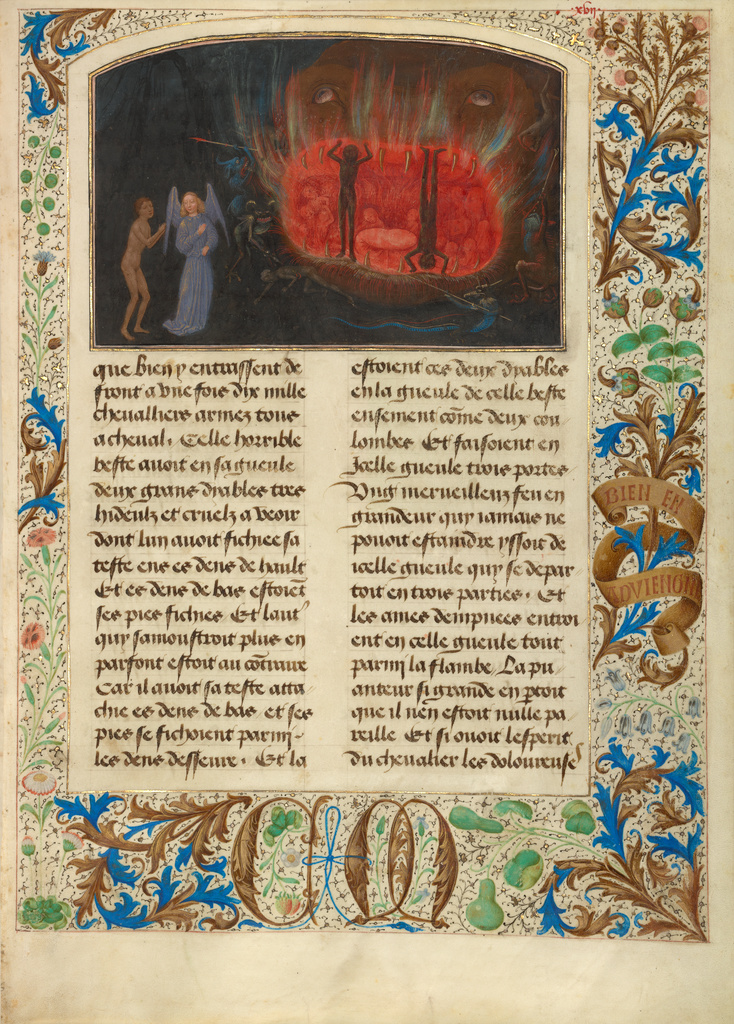 .xvij.
que bien y entrassent de
front a vne fois dix mille
cheualliers armez tous
a cheual. Celle horrible
beste auoit en sa gueule
deux grans dyables tres
hideulz et cruelz a veoir
dont lun auoit fichiee sa
teste ens es dens de hault
Et es dens de bas estoiēt
ses pies fichies Et laut'
quy samoustroit plus en
parfont estoit au cōtraire
Car il auoit sa teste atta
chie es dens de bas et ses
pies se fichoient parmj
les dens desseure. Et la
estoient ces deux dyables
en la gueule de celle beste
ensement cōme deux cou
lombes Et faisoient en
Jcelle gueule trois portes
Vng merueilleux feu en
grandeur quy iamais ne
pouoit estaindre yssoit de
icelle gueule quy se depar
toit en trois parties. Et
les ames dempnees entroi
ent en celle gueule tout
parmj la flambe La pu
anteur si grande en ptoit
que il nen estoit nulle pa
reille Et si ouoit lesperit
du cheualier les doloreuses
BIEN EN
ADVIENGNE
C M